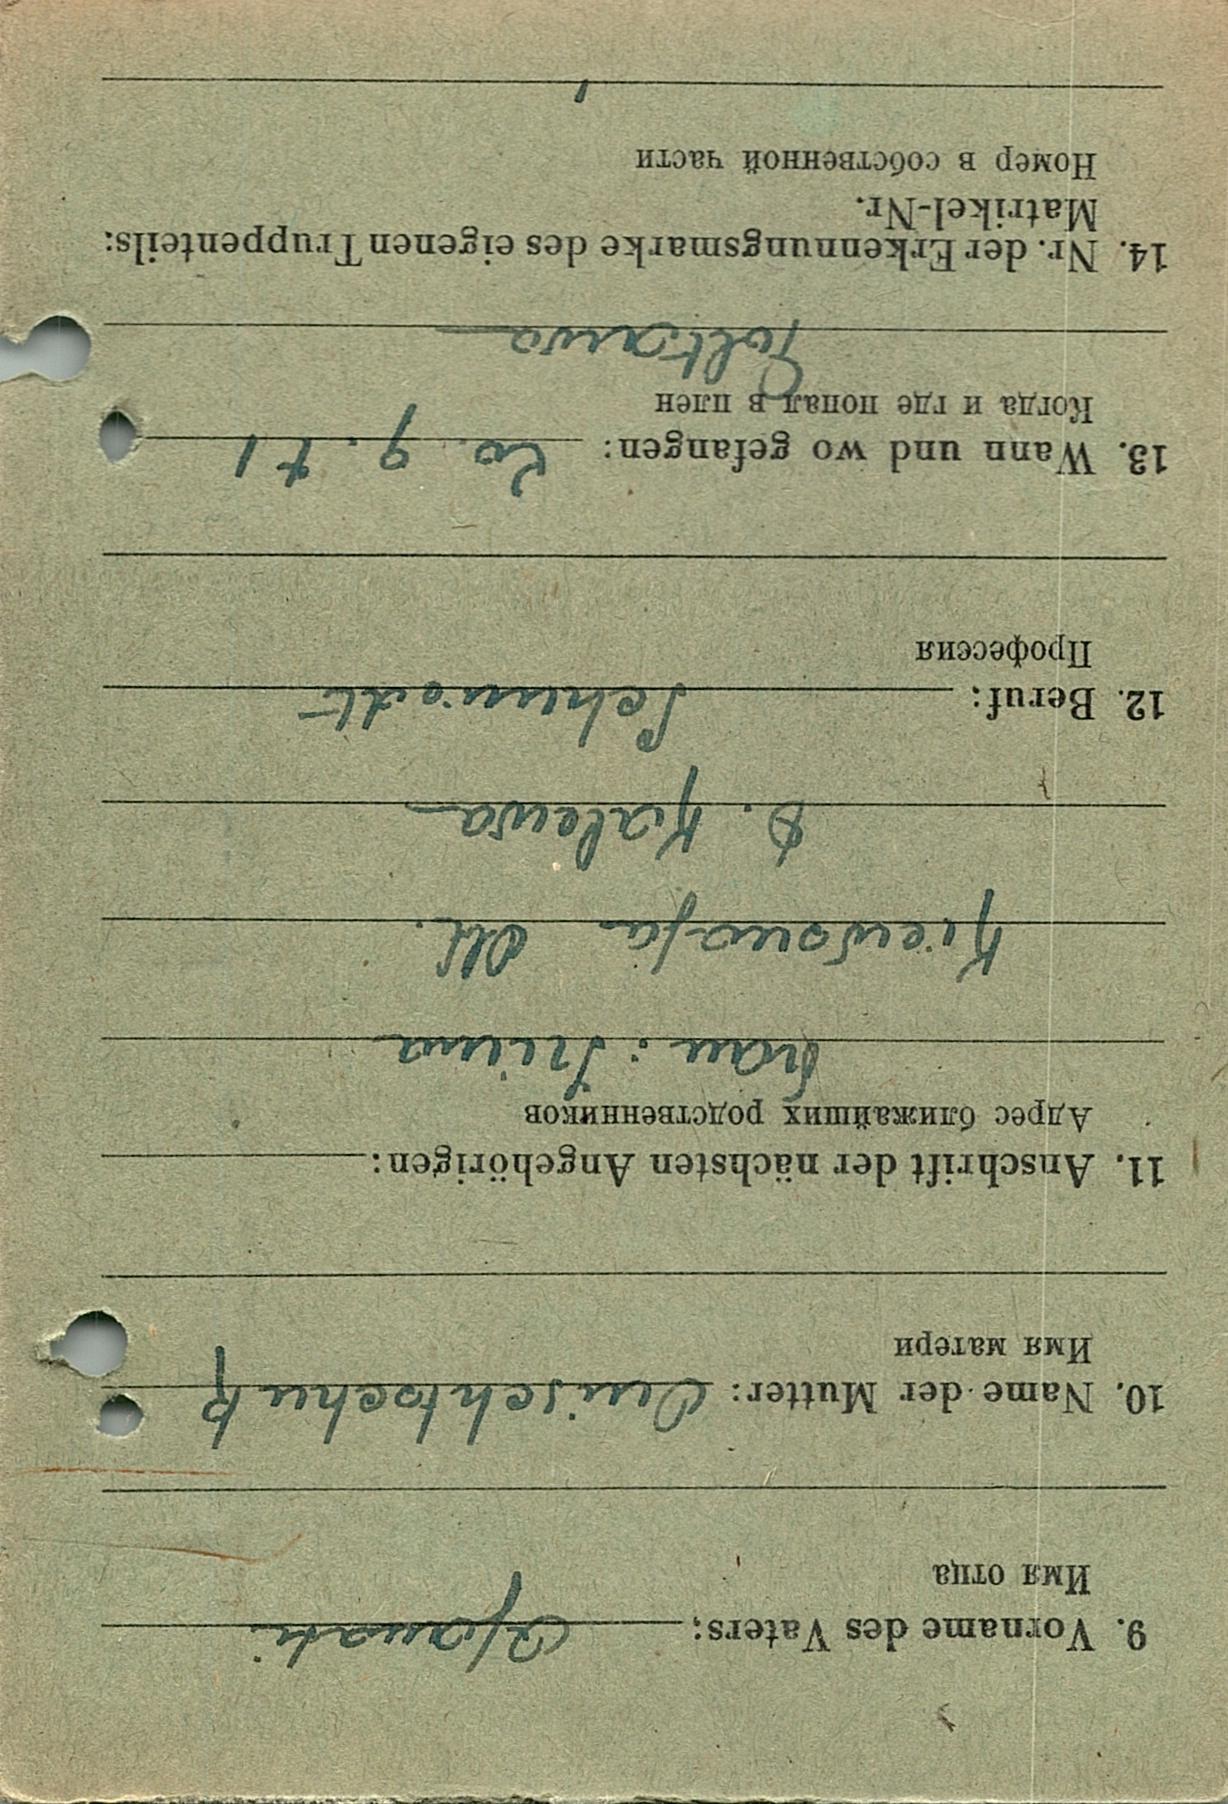 9. Vorname des Vaters: Afanati
Имя отца
10. Name der Mutter: Onischtschuk
Имя матери
11. Anschrift der nächsten Angehörigen:
Адрес ближайших родственников
Frau: Irina
Kiewskaja Obl.
D. Kalewa
12. Beruf: Schmidt
Профессия
13. Wann und wo gefangen: 20. 9. 41
Когда и где попал в плен
Poltawa
14. Nr. der Erkennungsmarke des eigenen Truppenteils:
Matrikel-Nr.
Номер в собственной части